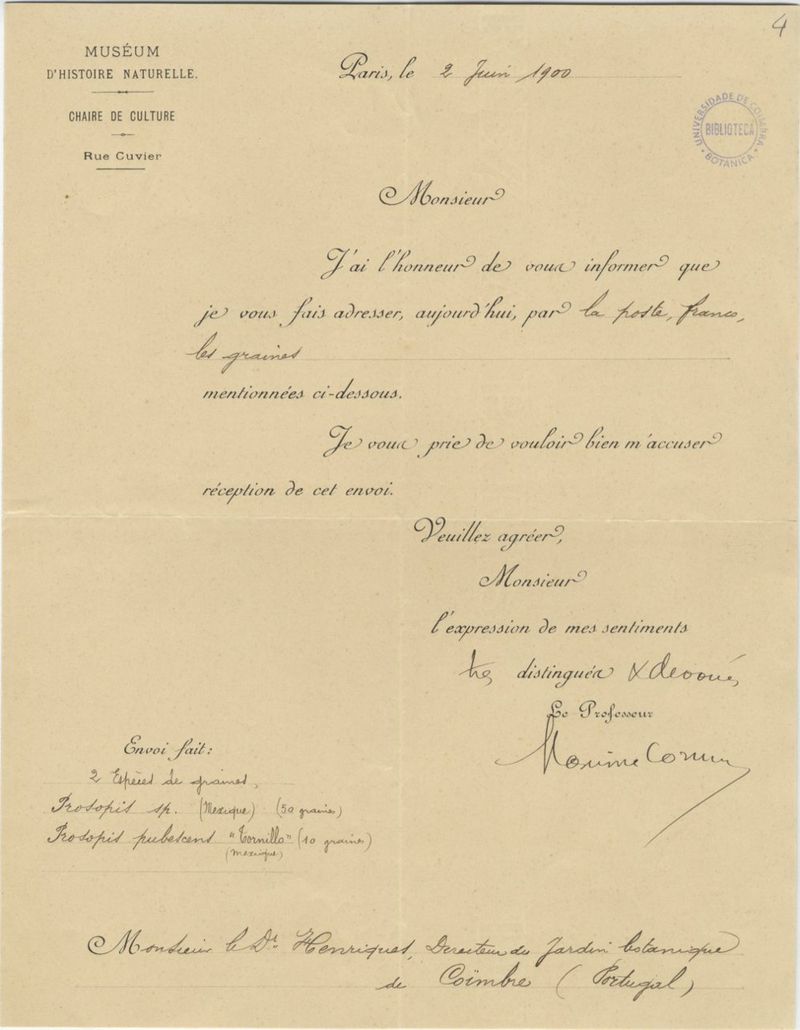 4
MUSÉUM
D'HISTOIRE NATURELLE.
CHAIRE DE CULTURE
Rue Cuvier
Paris, le 2 Juin 1900
UNIVERSIDADE DE COIMBRA
BIBLIOTECA
BOTANICA
Monsieur
J'ai l'honneur de vous informer que
je vous fais adresser, aujourd'hui, par la poste, franco,
les graines
mentionnées ci-dessous.
Je vous prie de vouloir bien m'accuser
réception de cet envoi.
Veuillez agréer,
Monsieur
l'expression de mes sentiments
très distingués & dévoués
Le Professeur
Maxime Cornu
Envoi fait:
2 Espèces de graines,
Prosopis sp. (Mexique) (50 graines)
Prosopis pubescens "Tornillo" (10 graines)
(Mexique)
Monsieur le Dr. Henriques, Directeur du Jardin botanique
de Coïmbre (Portugal)